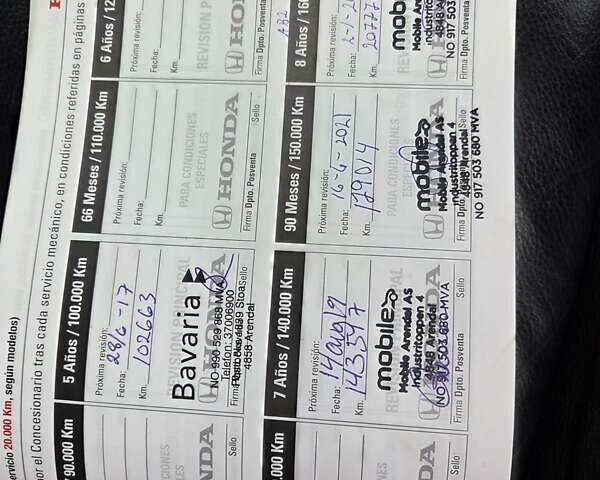 ervicio 20.000 Km, según modelos)
or el Concesionario tras cada servicio mecánico, en condiciones referidas en páginas
90.000 Km
HONDA
Sello
5 Años / 100.000 Km
Próxima revisión:
Fecha: 28/6-17
Km. 102663
REVISION PRINCIPAL
Bavaria
HONDA
NO 990 529 868 MVA
Telefon: 37006900
4858 Arendal
Sello
66 Meses / 110.000 Km
Próxima revisión:
Fecha:
Km.
PARA CONDICIONES
ESPECIALES
HONDA
Firma Dpto. Posventa
Sello
6 Años / 12
Próxima revisión:
Fecha:
Km.
REVISION PRINCIPAL
HONDA
Firma Dpto. Posventa
.000 Km
HONDA
Sello
7 Años / 140.000 Km
Próxima revisión:
Fecha:
Km.
mobile
Mobile Arendal AS
Industritoppen 4
4848 Arendal
NO 917 503 680 MVA
Firma Dpto. Posventa
Sello
90 Meses / 150.000 Km
Próxima revisión:
Fecha: 16-4-2021
Km.
PARA CONDICIONES
mobile
Mobile Arendal AS
Industritoppen 4
4848 Arendal
NO 917 503 680 MVA
Firma Dpto. Posventa
8 Años / 16
Próxima revisión:
Fecha: 2-1-2
Km. 20777
mobile
Mobile Are
Industrito
4848 A
NO 917 503
Firma Dpto. Posventa